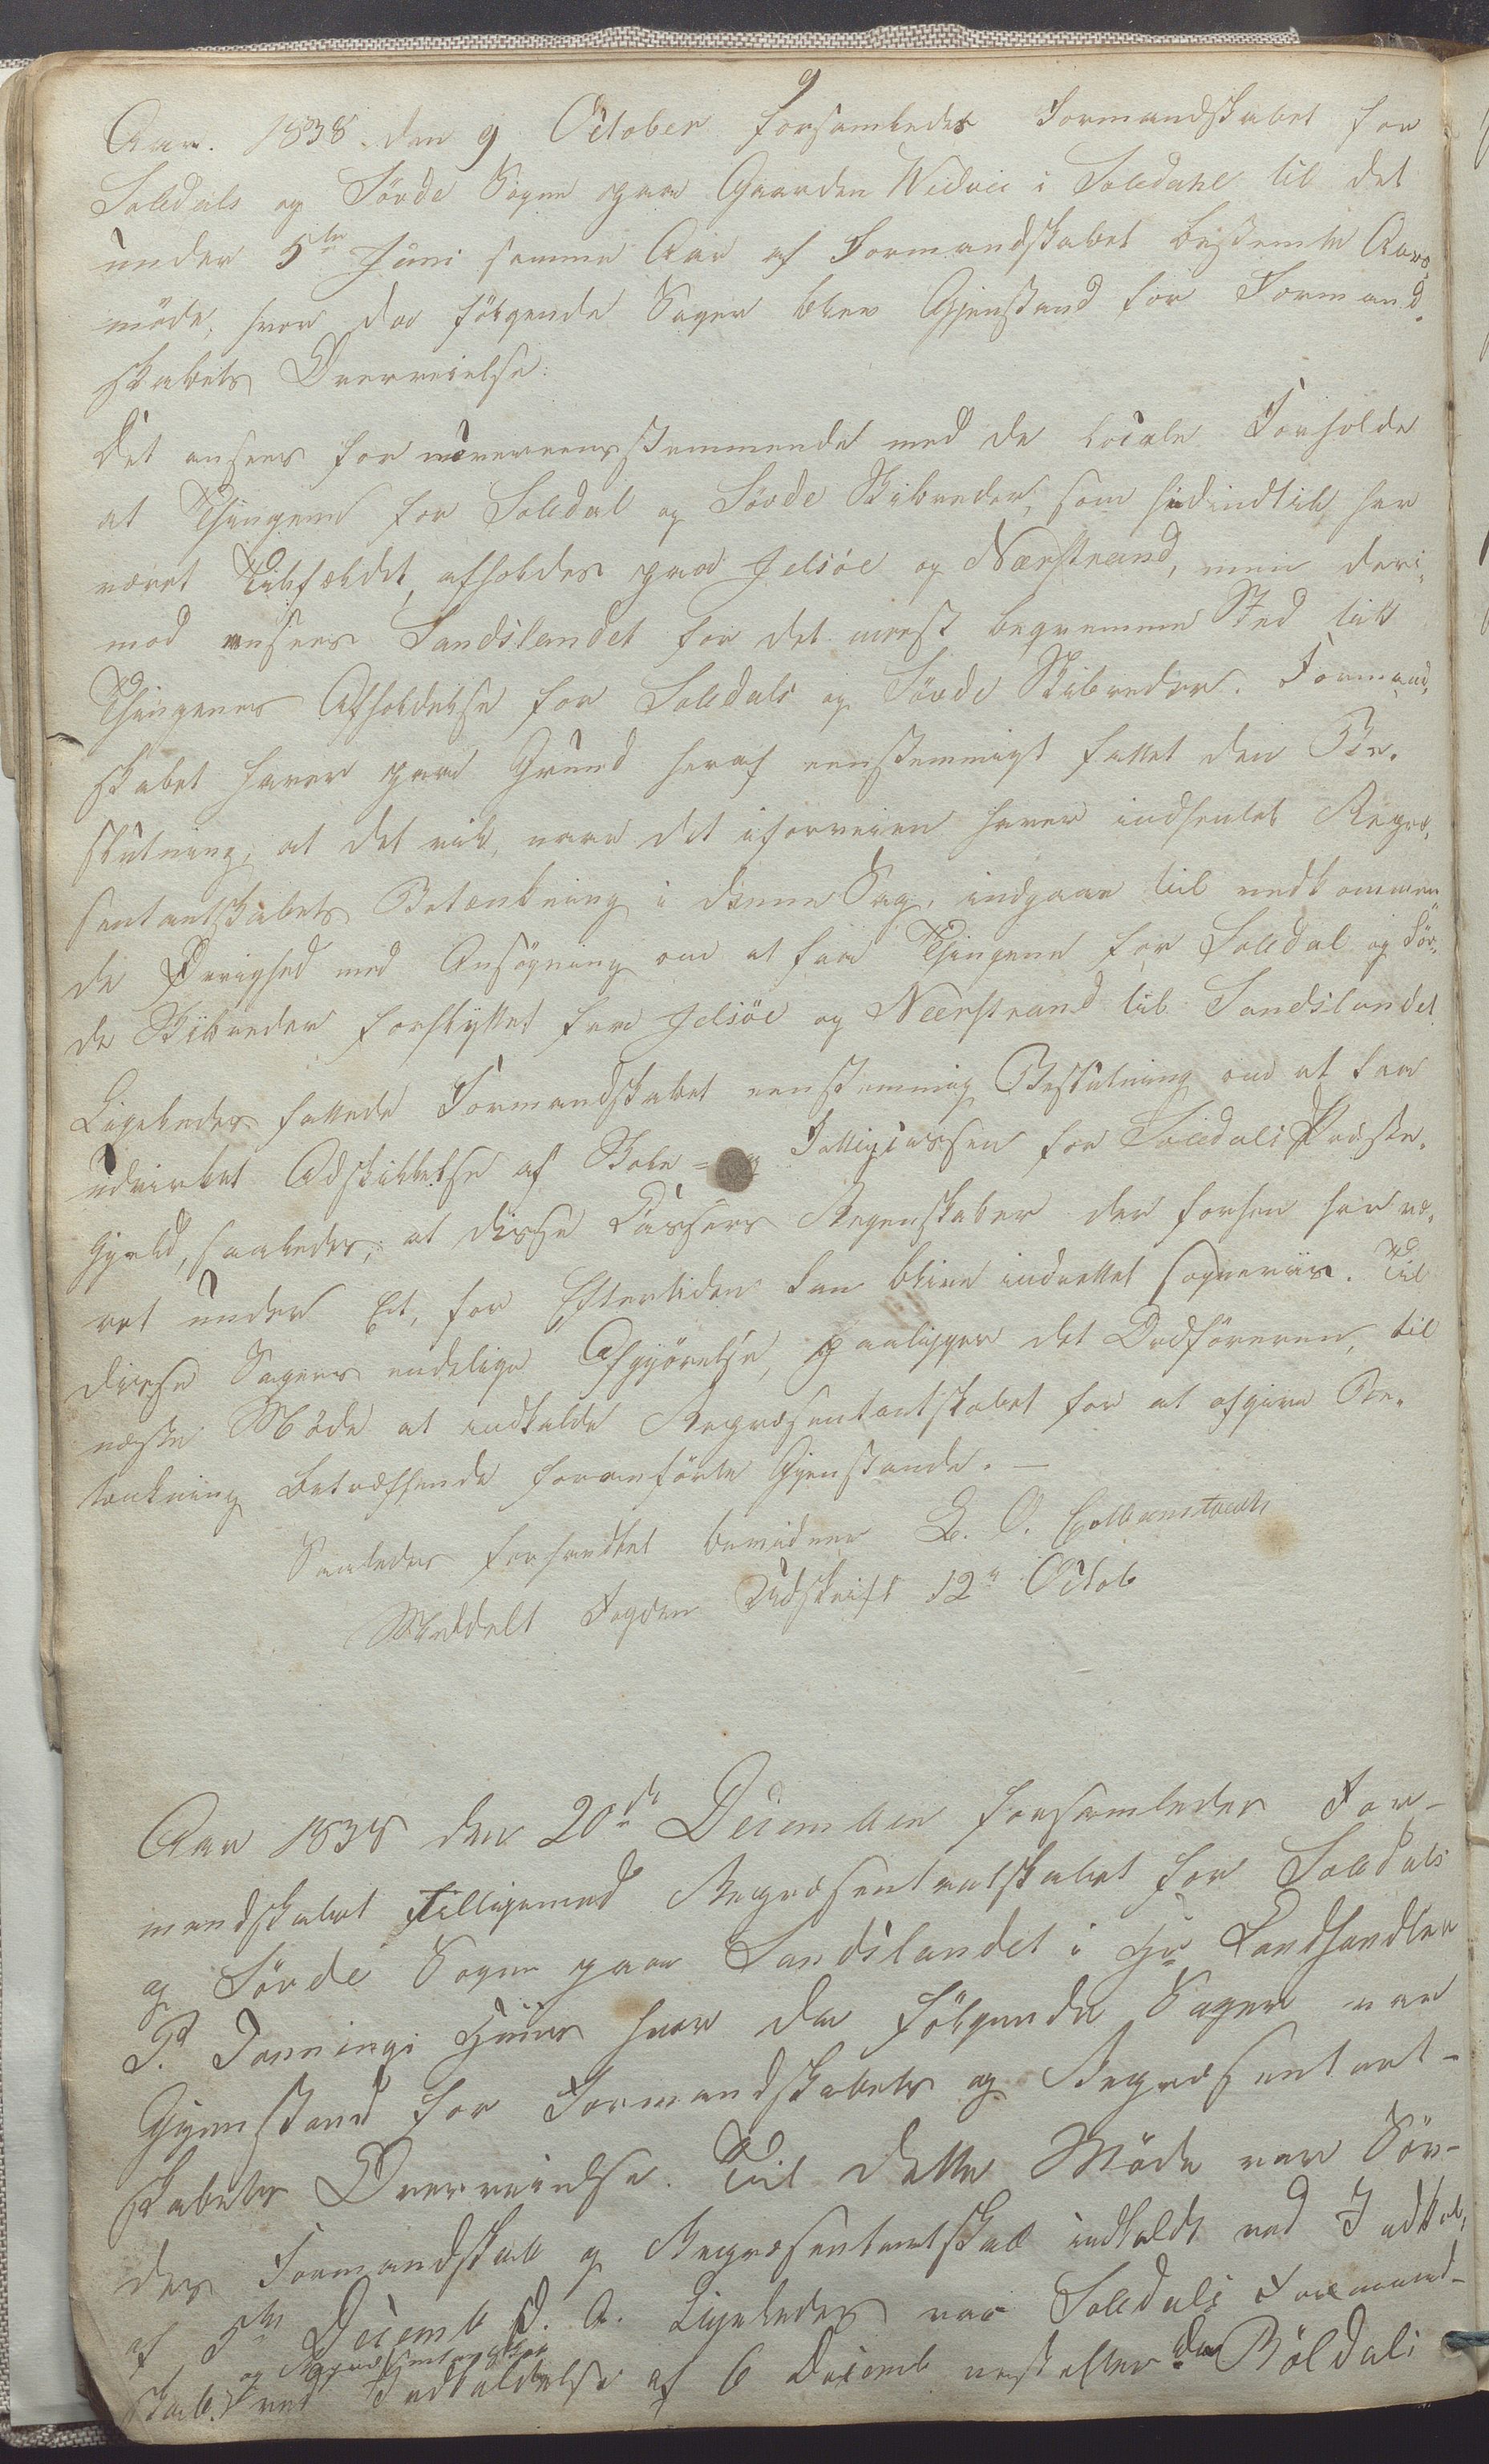 9
Aar. 1838. den 9 October forsamledes Formandskabet for
Soledals og Sövde Sogne paa Gaarden Widvei i Soledahl til det
under 5te Juni samme Aar af Formandskabet bestemte Aars,
möde, hvor da fölgende Sager blev Gjenstand for Formand,
skabets Overveielse:
Det ansees for uovereensstemmende med de locale Forholde
at Thingene for Soledal og Sövde Skibreder, som hidindtil har
været Tilfældet, afholdes paa Jelsöe og Nærstrand, men deri,
mod ansees Sandslandet for det meest beqvemme Sted till
Thingenes Afholdelse for Soledals og Sövde Skibreder. Formand,
skabet haver paa Grund heraf eenstemmigt fattet den Be,
slutning, at det vil, naar det iforveien haver indhentet Repræ,
sentantskabets Betænkning i denne Sag, indgaae til vedkommen
de Øvrighed med Ansögning om at faae Thingene for Soledal og Söv,
de Skibreder forflyttet fra Jelsöe og Neerstrand til Sandslandet
Ligeledes fattede Formandskabet eenstemmig Beslutning om at faae
udvirket Adskillelse af Skole= og Fattigcassen for Soledals Præste,
Gjeld, saaledes, at disse Cassers Regnskaber der forhen har væ,
ret under Eet, for Eftertiden kan blive indrettet sogneviis. Til
disse Sagers endelige Afgjörelse, paaligger det Ordföreren, til
næste Möde at indkalde Repræsentantskabet for at afgive Be,
tænkning betræffende foranförte Gjenstande. —
Saaledes forhandlet bevidner L. O.
Meddelt Fogden Udskrift 12te Octob
Aar 1838 den 20de December forsamledes For-
mandskabet tilligemed Repræsentantskabet for Soledals
og Sövde Sogne paa Sandslandet i Hr Landhandler
P. Dannings Huus hvor da fölgende Sager var
Gjenstand for Formandskabets og Repræsentant-
skabets Overveielse. Til dette Möde var Söv-
des Formandskab og Repræsentantskab indkaldt ved Indkal,
af 5te Decemb d. A. Ligeledes var Soledals Formand-
og Repræsentantskab
skab ved Indkaldelse af 6 Decemb næstefter da Röldals